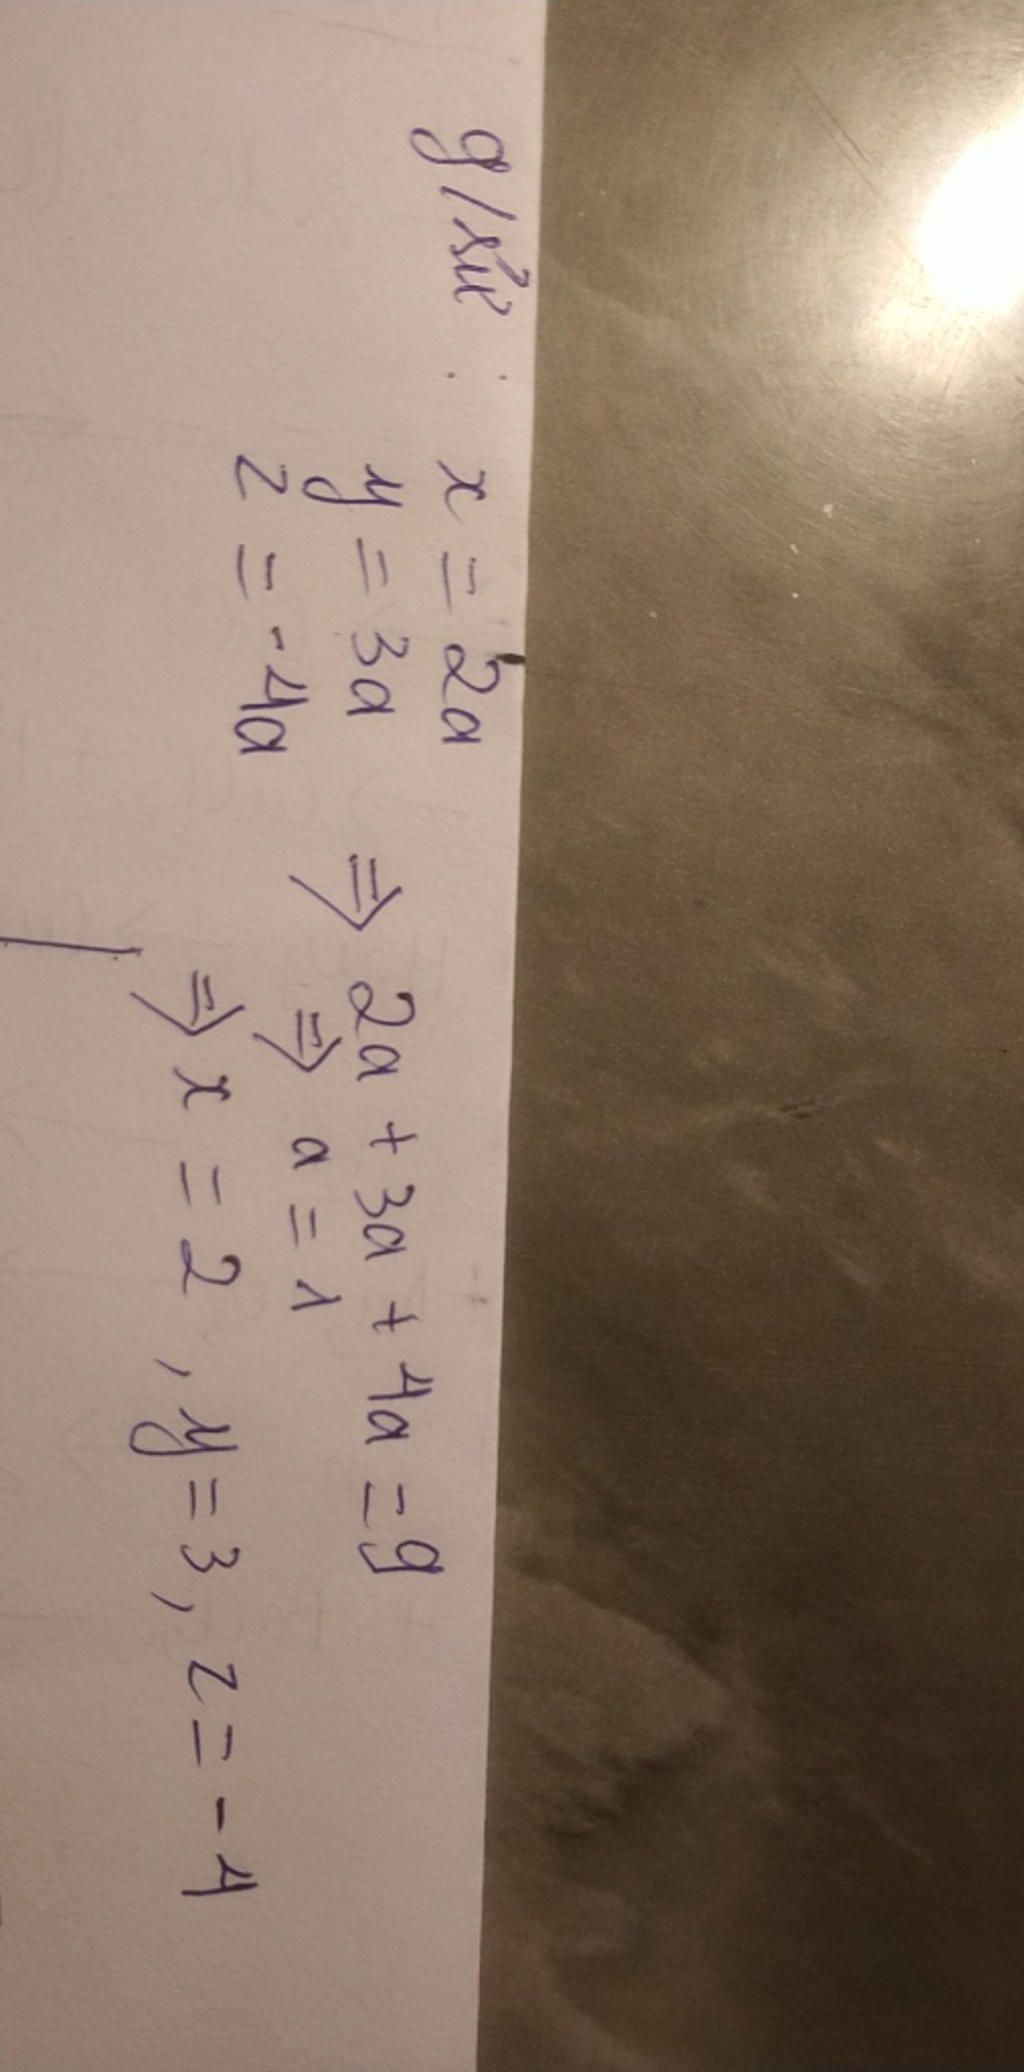 g/sử : x = 2a
y = 3a => 2a + 3a + 4a = 9
z = -4a => a = 1
=> x = 2 , y = 3, z = -4